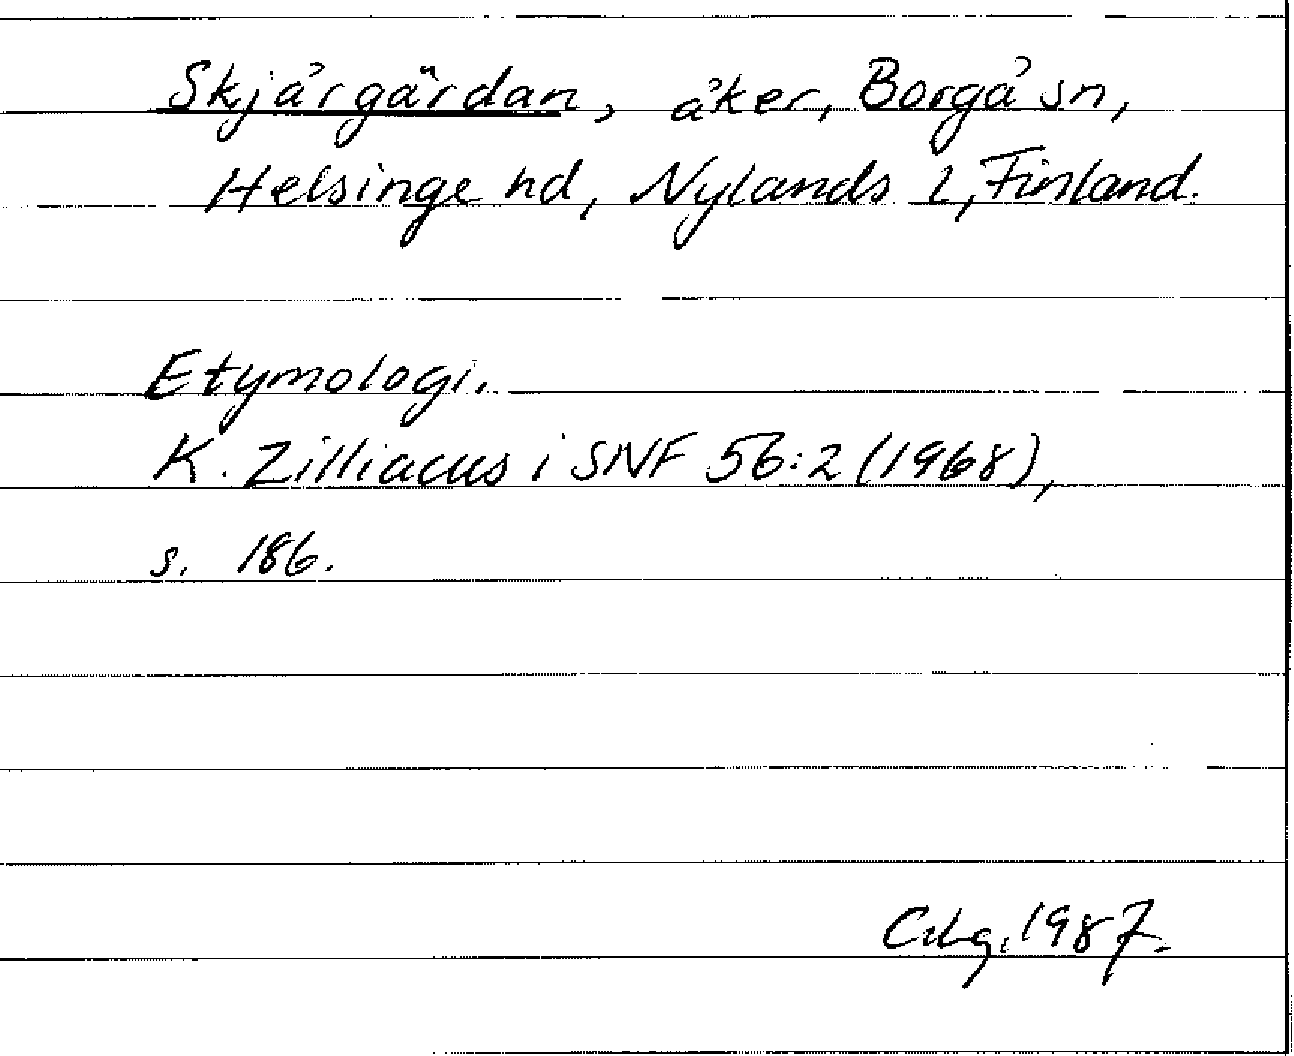 Skjårgärdan, åker, Borgå sn,
Helsinge hd, Nylands l, Finland.
Etymologi.
K. Zilliacus i SNF 56:2 (1968),
s. 186.
1987.